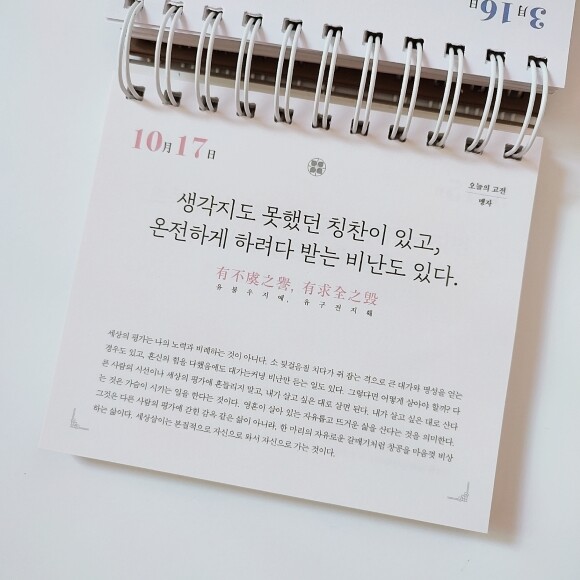 3月16日
10月17日
오늘의 고전
맹자
생각지도 못했던 칭찬이 있고,
온전하게 하려다 받는 비난도 있다.
有不虞之譽, 有求全之毁
유불우지예, 유구전지훼
세상의 평가는 나의 노력과 비례하는 것이 아니다. 소 뒷걸음질 치다가 쥐 잡는 격으로 큰 대가와 명성을 얻는
경우도 있고, 혼신의 힘을 다했음에도 대가는커녕 비난만 듣는 일도 있다. 그렇다면 어떻게 살아야 할까? 다
른 사람의 시선이나 세상의 평가에 흔들리지 말고, 내가 살고 싶은 대로 살면 된다. 내가 살고 싶은 대로 산다
는 것은 가슴이 시키는 일을 한다는 것이다. 영혼이 살아 있는 자유롭고 뜨거운 삶을 산다는 것을 의미한다.
그것은 다른 사람의 평가에 갇힌 감옥 같은 삶이 아니라, 한 마리의 자유로운 갈매기처럼 창공을 마음껏 비상
하는 삶이다. 세상살이는 본질적으로 자신으로 와서 자신으로 가는 것이다.